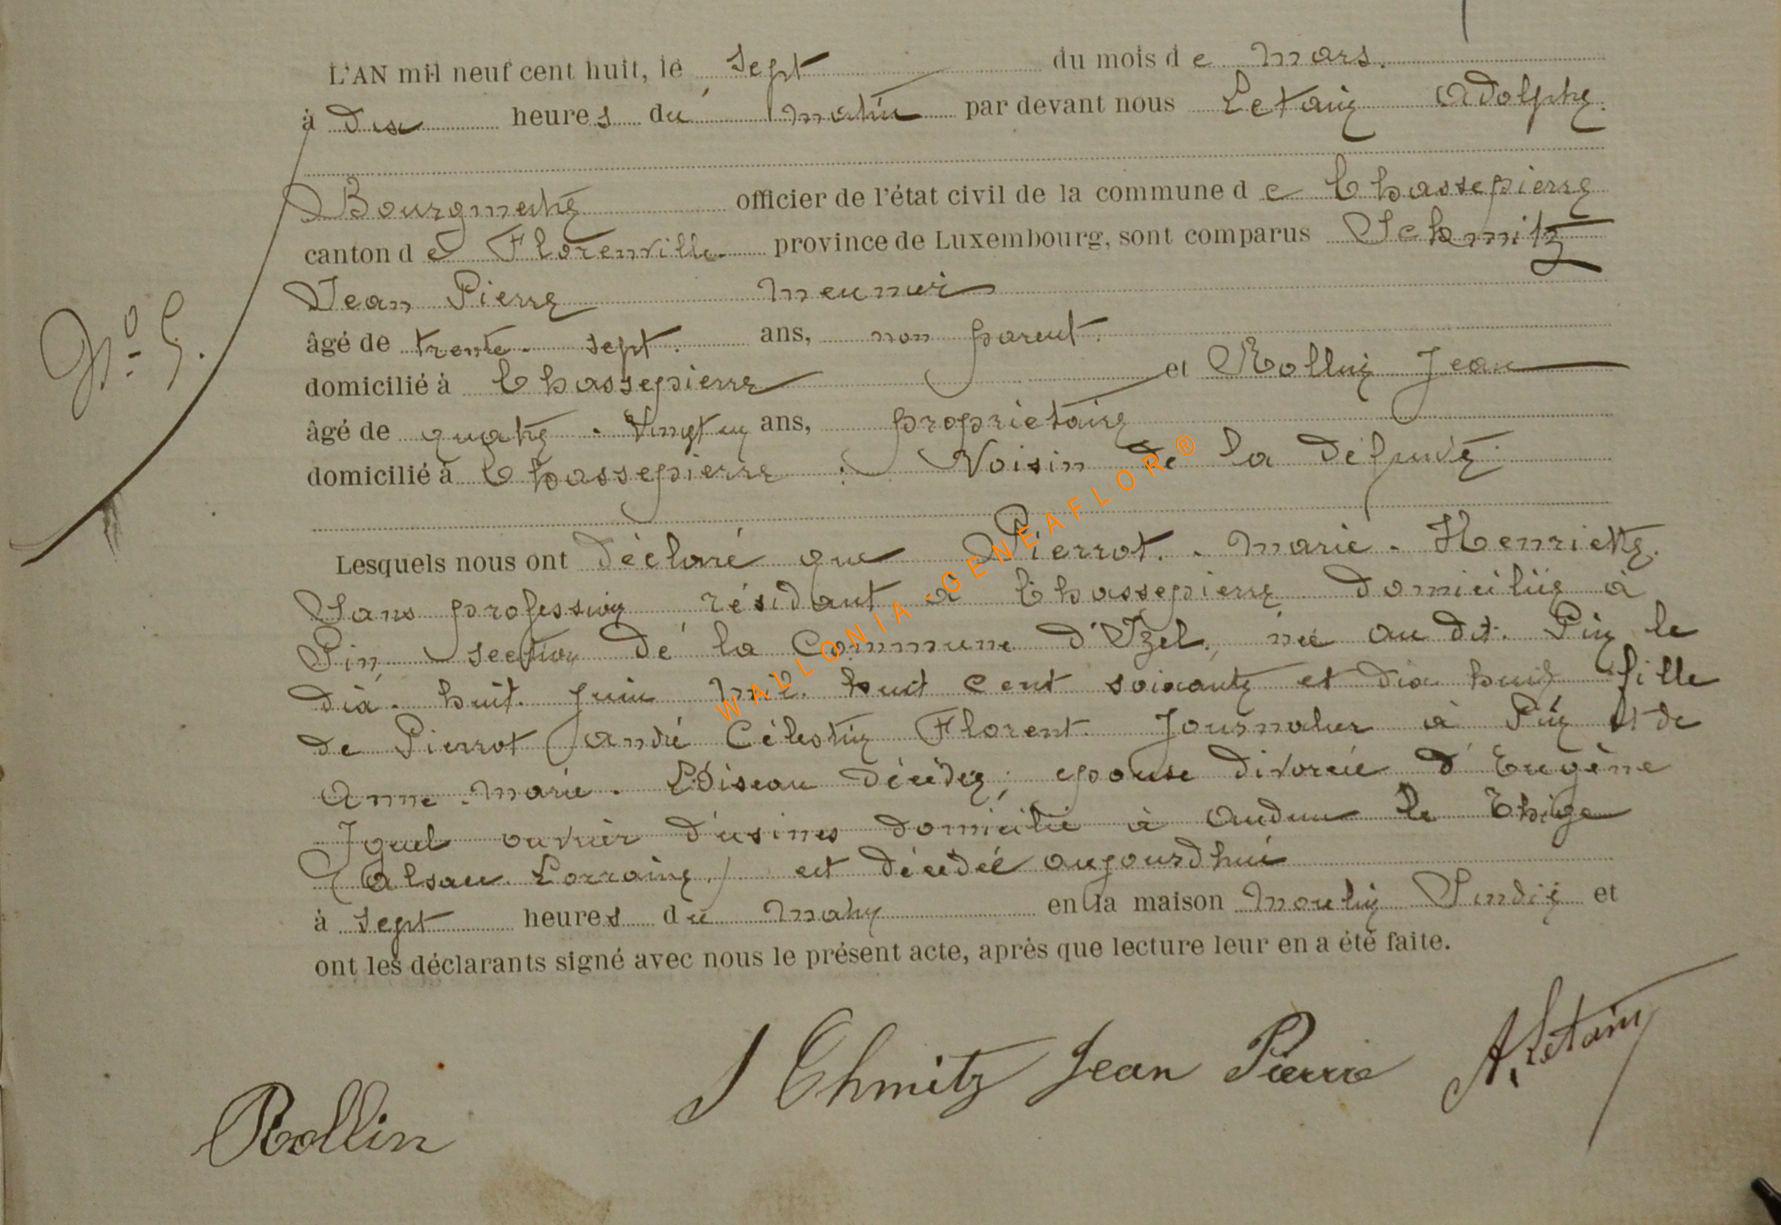 L'AN mil neuf cent huit, le sept du mois de Mars.
à dix heures du matin par devant nous Letain Adolphe.
Bourgmestre officier de l'état civil de la commune de Chassepierre
canton de Florenville province de Luxembourg, sont comparus Schmitz
Jean Pierre meunier
âgé de trente-sept. ans, non parent.
domicilié à Chassepierre et Rollin Jean
âgé de quatre-vingt un ans, propriétaire
domicilié à Chassepierre. Voisin de la défunte.
Lesquels nous ont déclaré que Pierrot. Marie. Henriette.
Sans profession résidant à Chassepierre domiciliée à
Pin, section de la Commune d'Izel, née au dit Pin le
dix-huit juin mil huit cent soixante et dix huit fille
de Pierrot André Célestin Florent. Journalier à Pin et de
Anne-Marie. Loiseau décédée, épouse divorcée d'Eugène
Iguel ouvrier d'usines domicilié à Audun le Thige
(Alsace Lorraine) est décédée aujourd'hui
à sept heures du matin en la maison Moulin et
ont les déclarants signé avec nous le présent acte, après que lecture leur en a été faite.
No 5.
Schmitz Jean Pierre A. Letain
Rollin
WALLONIA-GENEAFLOR®